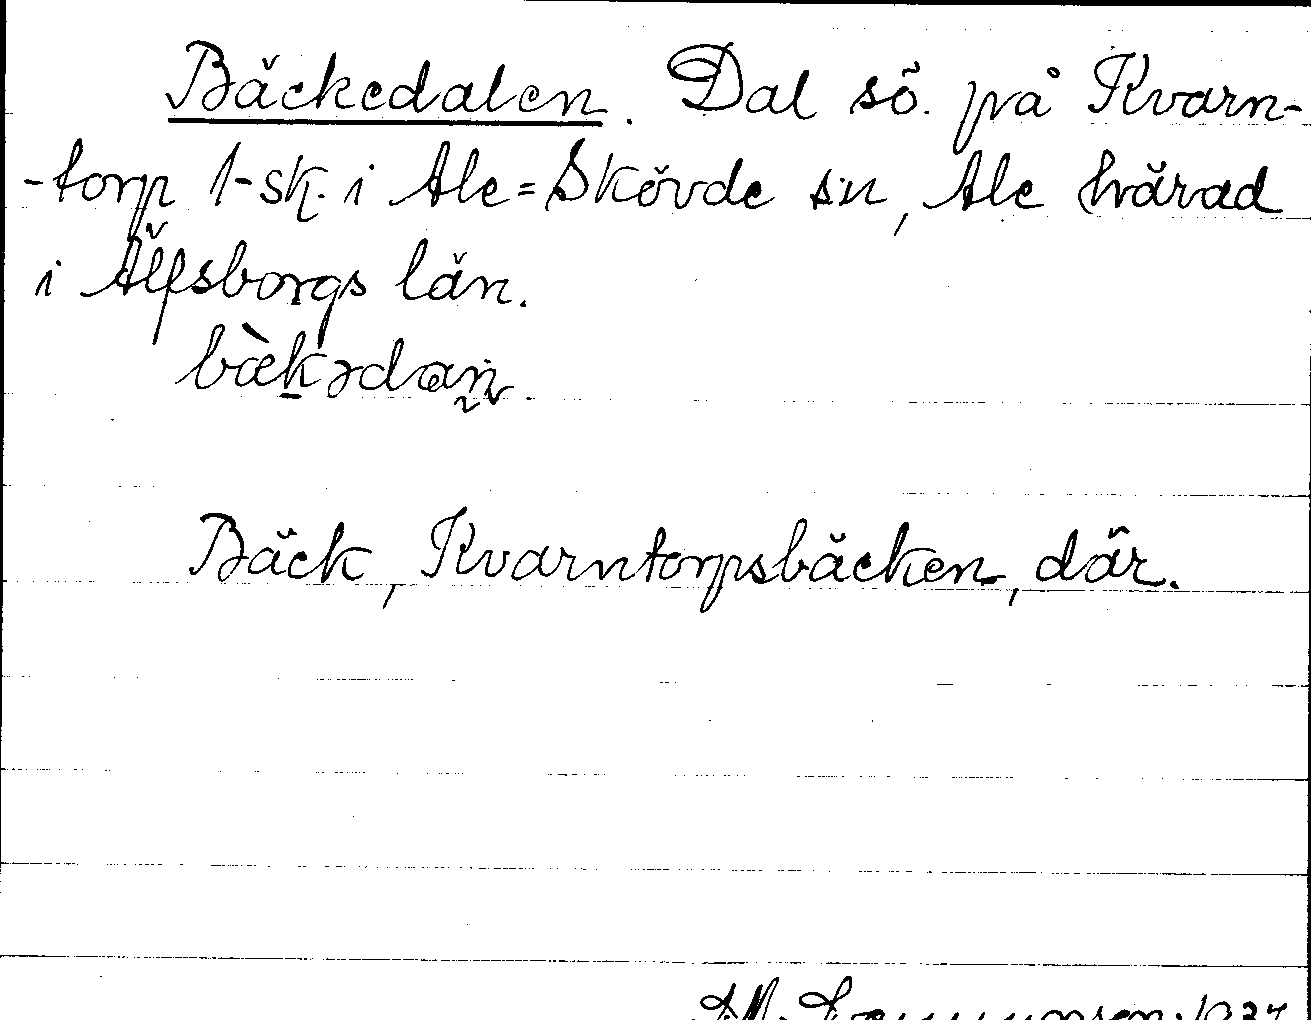 Bäckedalen. Dal sö. på Kvarn-
-torp 1-sk. i Ale=Skövde sn, Ale härad
i Älfsborgs län.
bæ̀kədaṇ.
Bäck, Kvarntorpsbäcken, där.
1937